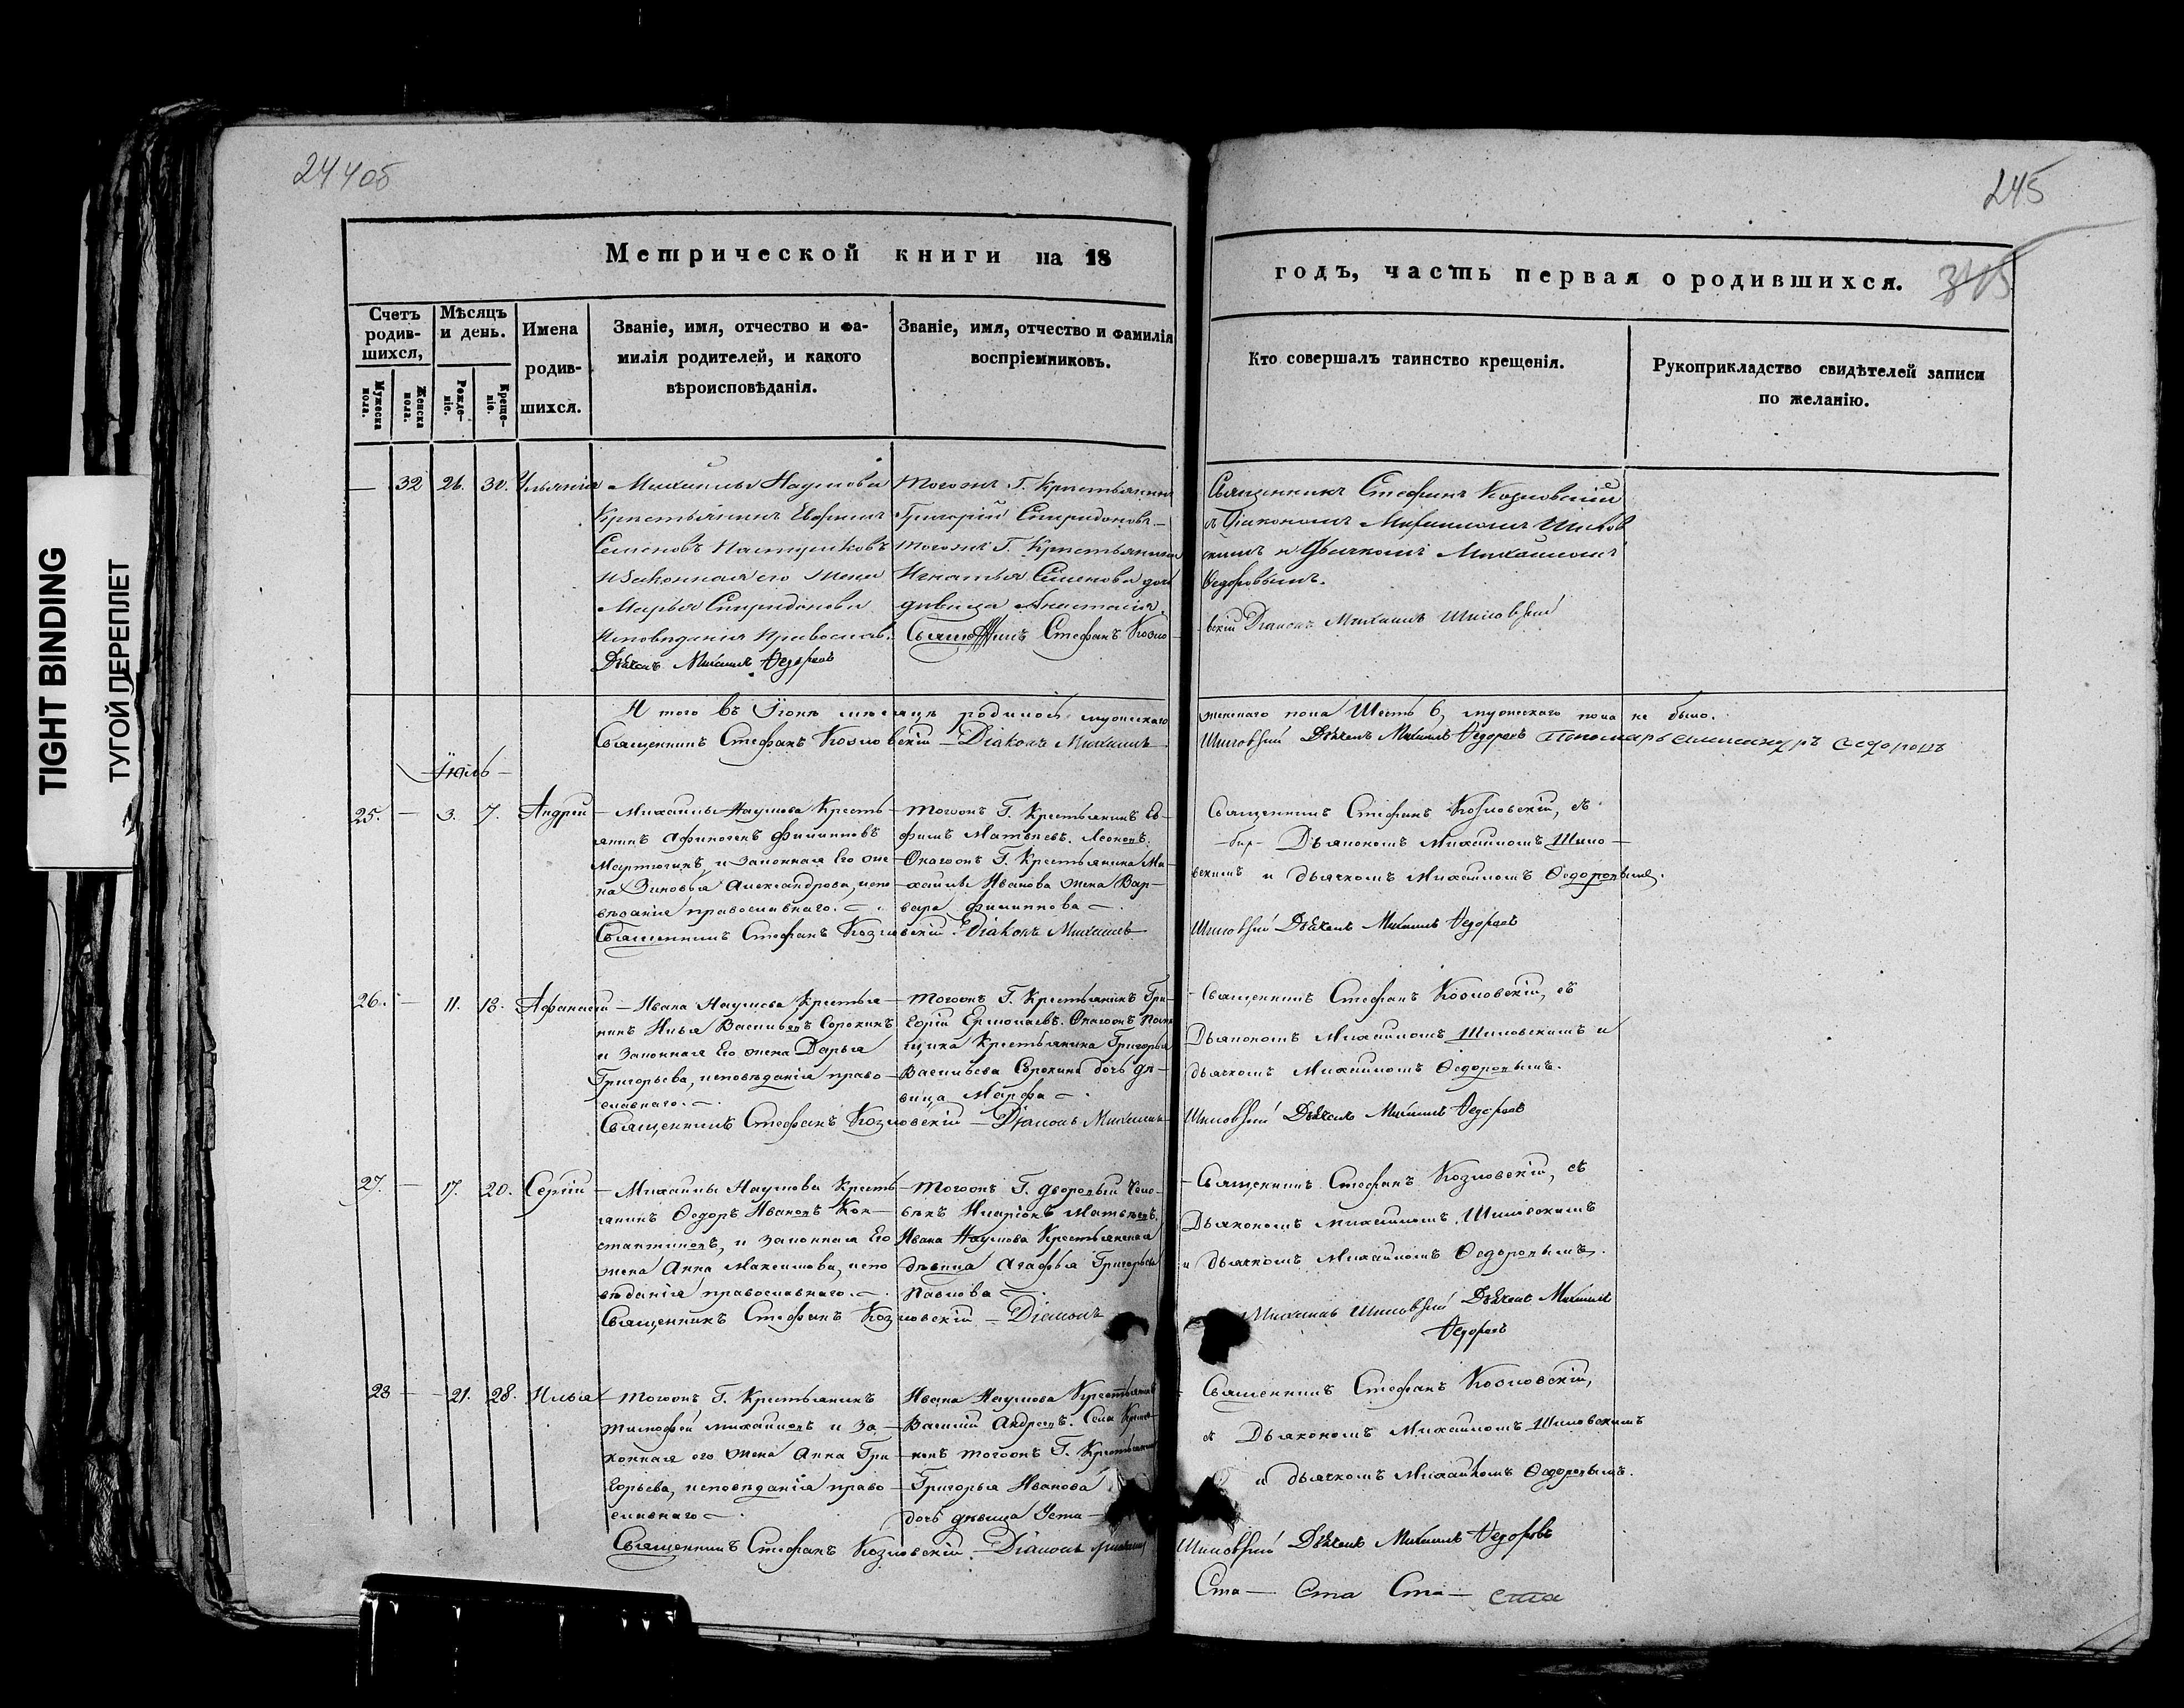 TIGHT BINDING
ТУГОЙ ПЕРЕПЛЕТ
244об
245
Метрической книги на 18
годъ, часть первая о родившихся.
345
Счетъ родив-шихся,
Мужеска пола.
Женска пола.
Мѣсяцъ и день.
Рожде-ніе.
Креще-ніе.
Имена
родив-
шихся.
Званіе, имя, отчество и фа-
милія родителей, и какого
вѣроисповѣданія.
Званіе, имя, отчество и фамилія
воспріемниковъ.
Кто совершалъ таинство крещенія.
Рукоприкладство свидѣтелей записи
по желанію.
— 32 26. 30. Ульянія
Михайлы Наумова
Крестьянинъ Ефимъ
Семеновъ Пастушковъ
и Законная его жена
Марья Спиридонова
Исповѣданія Православ.
Дьячекъ Михаилъ Ѳедоровъ
Тогожъ Г. Крестьянинъ
Григорій Спиридоновъ —
тогожъ Г. Крестьянина
Игнатья Семенова дочь
дѣвица Анастасія.
Стефанъ Козло
Священникъ Стефанъ Козловскій
съ Діакономъ Михаиломъ Шилов
скимъ и Дьячкомъ Михаиломъ
Ѳедоровымъ.
вскій Діаконъ Михаилъ Шиловскій
А того въ Іюнѣ мѣсяцѣ родилось мужескаго
женскаго пола Шесть 6, мужескаго пола не было.
Священникъ Стефанъ Козловскій — Діаконъ Михаилъ
Шиловскій Дьячекъ Михаилъ Ѳедоровъ Пономарь Ѳедоровъ
— Іюль —
25. — 3. 7. Андрей
— Михайлы Наумова Кресть-
янинъ Афиногенъ Филипповъ
Мартюгинъ, и Законная Его же-
на Зиновья Александрова, испо-
вѣданія православнаго.
Священникъ Стефанъ Козловскій. Діаконъ Михаилъ
— Тогожъ Г. Крестьянинъ Еѳ-
фимъ Матвѣевъ.
Онагожъ Г. Крестьянина Ми-
хайлы Иванова жена Вар-
вара Филиппова
Священникъ Стефанъ Козловскій, съ
Дьякономъ Михаиломъ Шило-
вскимъ и дьячкомъ Михаиломъ Ѳедоровымъ.
Шиловскій Дьячекъ Михаилъ Ѳедоровъ
26. — 11. 18. Афанасій
— Ивана Наумова Крестья-
нинъ Илья Васильевъ Сорокинъ
и Законная Его жена Дарья
Григорьева, исповѣданія право-
славнаго.
Священникъ Стефанъ Козловскій — Діаконъ Михаилъ
— Тогожъ Г. Крестьянинъ Гри-
горій Ермолаевъ. Онагожъ Помѣ-
щика Крестьянина Григорья
Васильева Сорокина дочь дѣ-
вица Марфа
Священникъ Стефанъ Козловскій, съ
Дьякономъ Михаиломъ Шиловскимъ и
дьячкомъ Михаиломъ Ѳедоровымъ.
Шиловскій Дьячекъ Михаилъ Ѳедоровъ
27. — 17. 20. Сергій
— Михайлы Наумова Кресть-
янинъ Ѳедоръ Ивановъ Кон-
стантиновъ, и законная Его
жена Анна Максимова, испо
вѣданія православнаго.
Священникъ Стефанъ Козловскій — Діаконъ
— Тогожъ Г. дворовый чело-
вѣкъ Иларіонъ Матвѣевъ.
Ивана Наумова Крестьянская
дѣвица Агафья Григорьева
Павлова
— Священникъ Стефанъ Козловскій, съ
Дьякономъ Михаиломъ Шиловскимъ
и дьячкомъ Михаиломъ Ѳедоровымъ.
Михаилъ Шиловскій Дьячекъ Михаилъ
Ѳедоровъ
28 — 21. 28. Илья
— Тогожъ Г. Крестьянинъ
Тимофей Михайловъ и За-
конная его жена Анна Гри-
горьева, исповѣданія право-
славнаго
Священникъ Стефанъ Козловскій. Діаконъ Михаилъ
Ивана Наумова Крестьянинъ
Василій Андреевъ.
тогожъ Г. Крестьянина
Григорья Иванова
дочь дѣвица Устя —
Священникъ Стефанъ Козловскій,
съ Дьякономъ Михаиломъ Шиловскимъ
и дьячкомъ Михаиломъ Ѳедоровымъ.
Шиловскій Дьячекъ Михаилъ Ѳедоровъ
Ста — Ста Ста — Ста